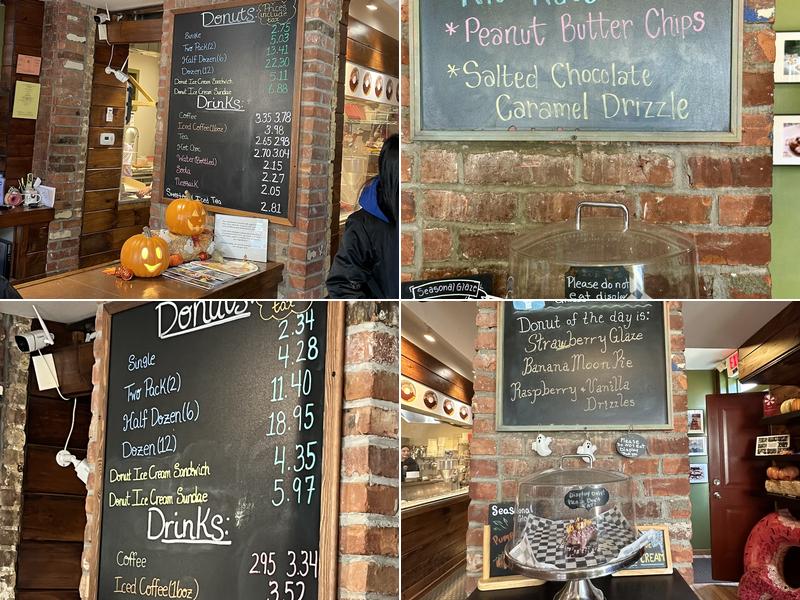 Donuts
Prices include tax
Single 2.75
Two Pack(2) 5.03
Half Dozen(6) 13.41
Dozen(12) 22.30
Donut Ice Cream Sandwich 5.11
Donut Ice Cream Sundae 6.88
Drinks:
Coffee 3.35 3.78
Iced Coffee(16oz) 3.98
Tea 2.65 2.98
Hot Choc. 2.70 3.04
Water(Bottled) 2.15
Soda 2.27
Nesquik 2.05
Iced Tea 2.81
*Peanut Butter Chips
*Salted Chocolate
Caramel Drizzle
Seasonal Glaze
Please do not
eat display
Donuts
tax
Single 2.34
Two Pack(2) 4.28
Half Dozen(6) 11.40
Dozen(12) 18.95
Donut Ice Cream Sandwich 4.35
Donut Ice Cream Sundae 5.97
Drinks:
Coffee 2.95 3.34
Iced Coffee(16oz) 3.52
Donut of the day is:
Strawberry Glaze
Banana Moon Pie
Raspberry + Vanilla
Drizzles
Please
Do not eat
Display
Display Only
CREAM